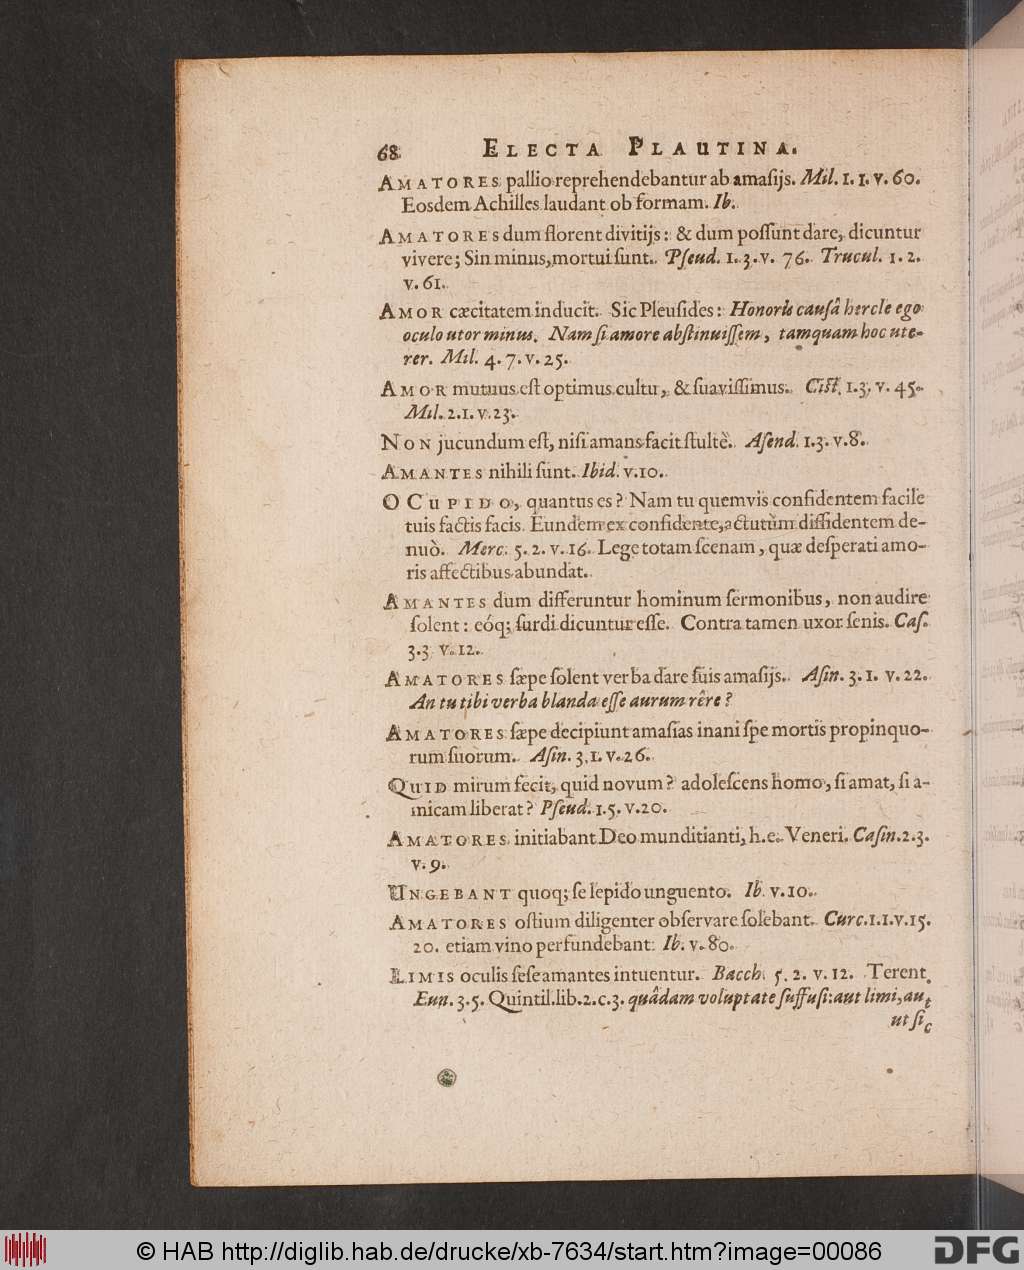 68 ELECTA PLAUTINA.
AMATORES pallio reprehendebantur ab amaſijs. Mil. 1. 1. v. 60.
Eosdem Achilles laudant ob formam. Ib.
AMATORES dum florent divitijs: & dum poſſunt dare, dicuntur
vivere; Sin minus, mortui ſunt. Pſeud. 1. 3. v. 76. Trucul. 1. 2.
v. 61.
AMOR cæcitatem inducit. Sic Pleuſides: Honoris cauſâ hercle ego
oculo utor minus. Nam ſi amore abſtinuiſſem, tamquam hoc ute-
rer. Mil. 4. 7. v. 25.
AMOR mutuus eſt optimus cultu, & ſuaviſſimus. Ciſt. 1. 3. v. 45.
Mil. 2. 1. v. 23.
NON jucundum eſt, niſi amans facit ſtultè. Aſend. 1. 3. v. 8.
AMANTES nihili ſunt. Ibid. v. 10.
O CUPIDO, quantus es? Nam tu quemvis confidentem facile
tuis factis facis. Eundem ex confidente, actutùm diffidentem de-
nuò. Merc. 5. 2. v. 16. Lege totam ſcenam, quæ deſperati amo-
ris affectibus abundat.
AMANTES dum differuntur hominum ſermonibus, non audire
ſolent: eóq; ſurdi dicuntur eſſe. Contra tamen uxor ſenis. Caſ.
3. 3 v. 12.
AMATORES ſæpe ſolent verba dare ſuis amaſijs. Aſin. 3. 1. v. 22.
An tu tibi verba blanda eſſe aurum rêre?
AMATORES ſæpe decipiunt amaſias inani ſpe mortis propinquo-
rum ſuorum. Aſin. 3. 1. v. 26.
QUID mirum fecit, quid novum? adoleſcens homo, ſi amat, ſi a-
micam liberat? Pſeud. 1. 5. v. 20.
AMATORES initiabant Deo munditianti, h. e. Veneri. Caſin. 2. 3.
v. 9.
UNGEBANT quoq; ſe lepido unguento. Ib. v. 10.
AMATORES oſtium diligenter obſervare ſolebant. Curc. 1. 1. v. 15.
20. etiam vino perfundebant: Ib. v. 80.
LIMIS oculis ſeſe amantes intuentur. Bacch. 5. 2. v. 12. Terent.
Eun. 3. 5. Quintil. lib. 2. c. 3. quâdam voluptate ſuffuſi: aut limi, aut
ut ſic
© HAB http://diglib.hab.de/drucke/xb-7634/start.htm?image=00086
DFG